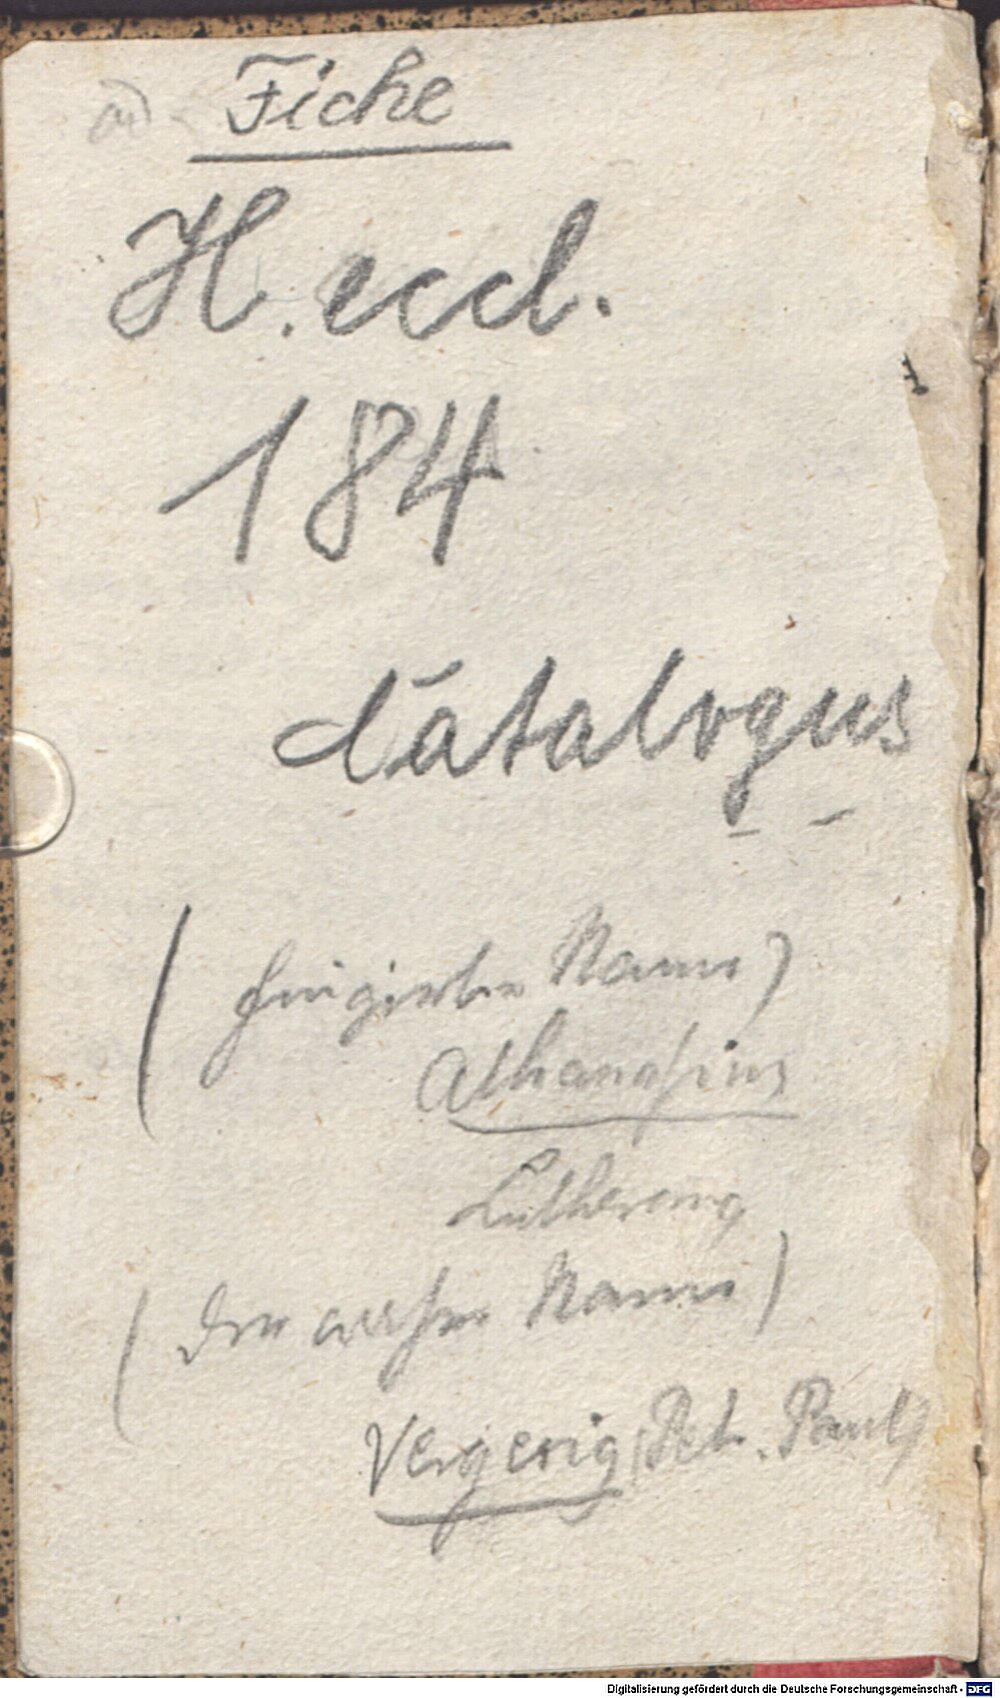 ad Fiche
H. eccl.
184
Catalogus
(fingirter Name)
Athanasius
Lutherus
(Der wahre Name)
Vergerius Pet. Paul)
Digitalisierung gefördert durch die Deutsche Forschungsgemeinschaft - DFG